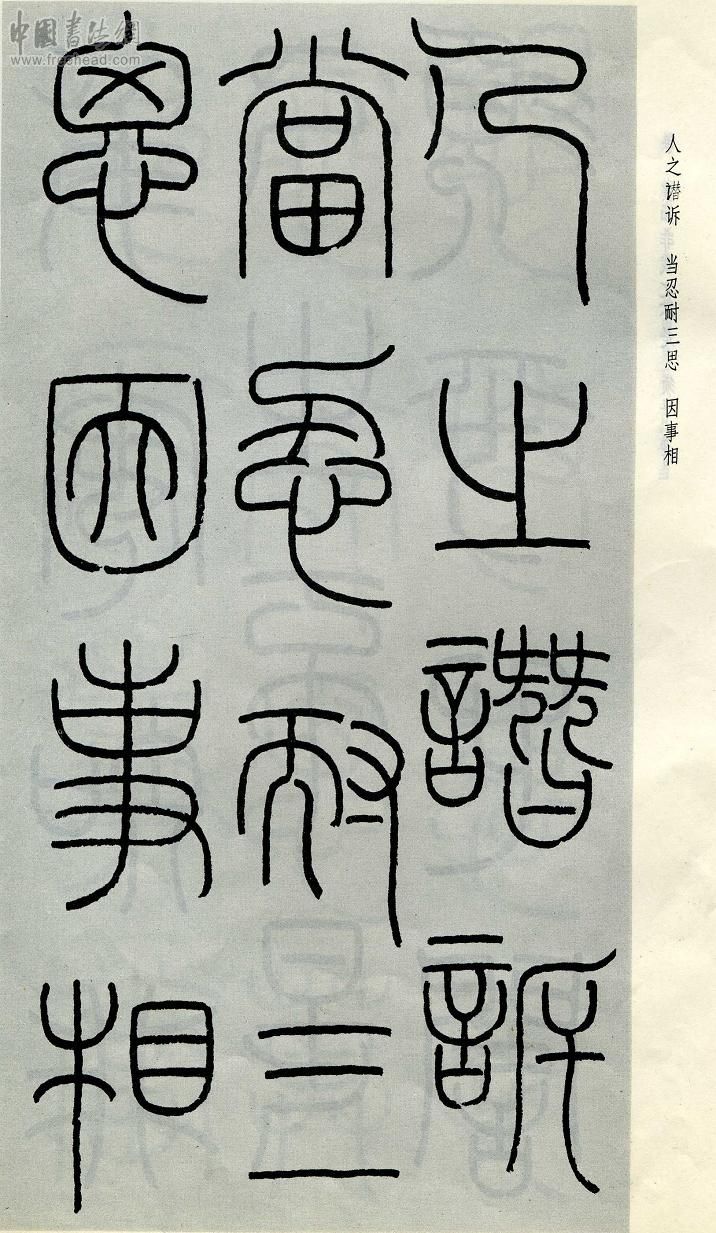 人之譖訴
當忍耐三
思因事相
人之谮诉 当忍耐三思 因事相
中國書法網
www.freehead.com